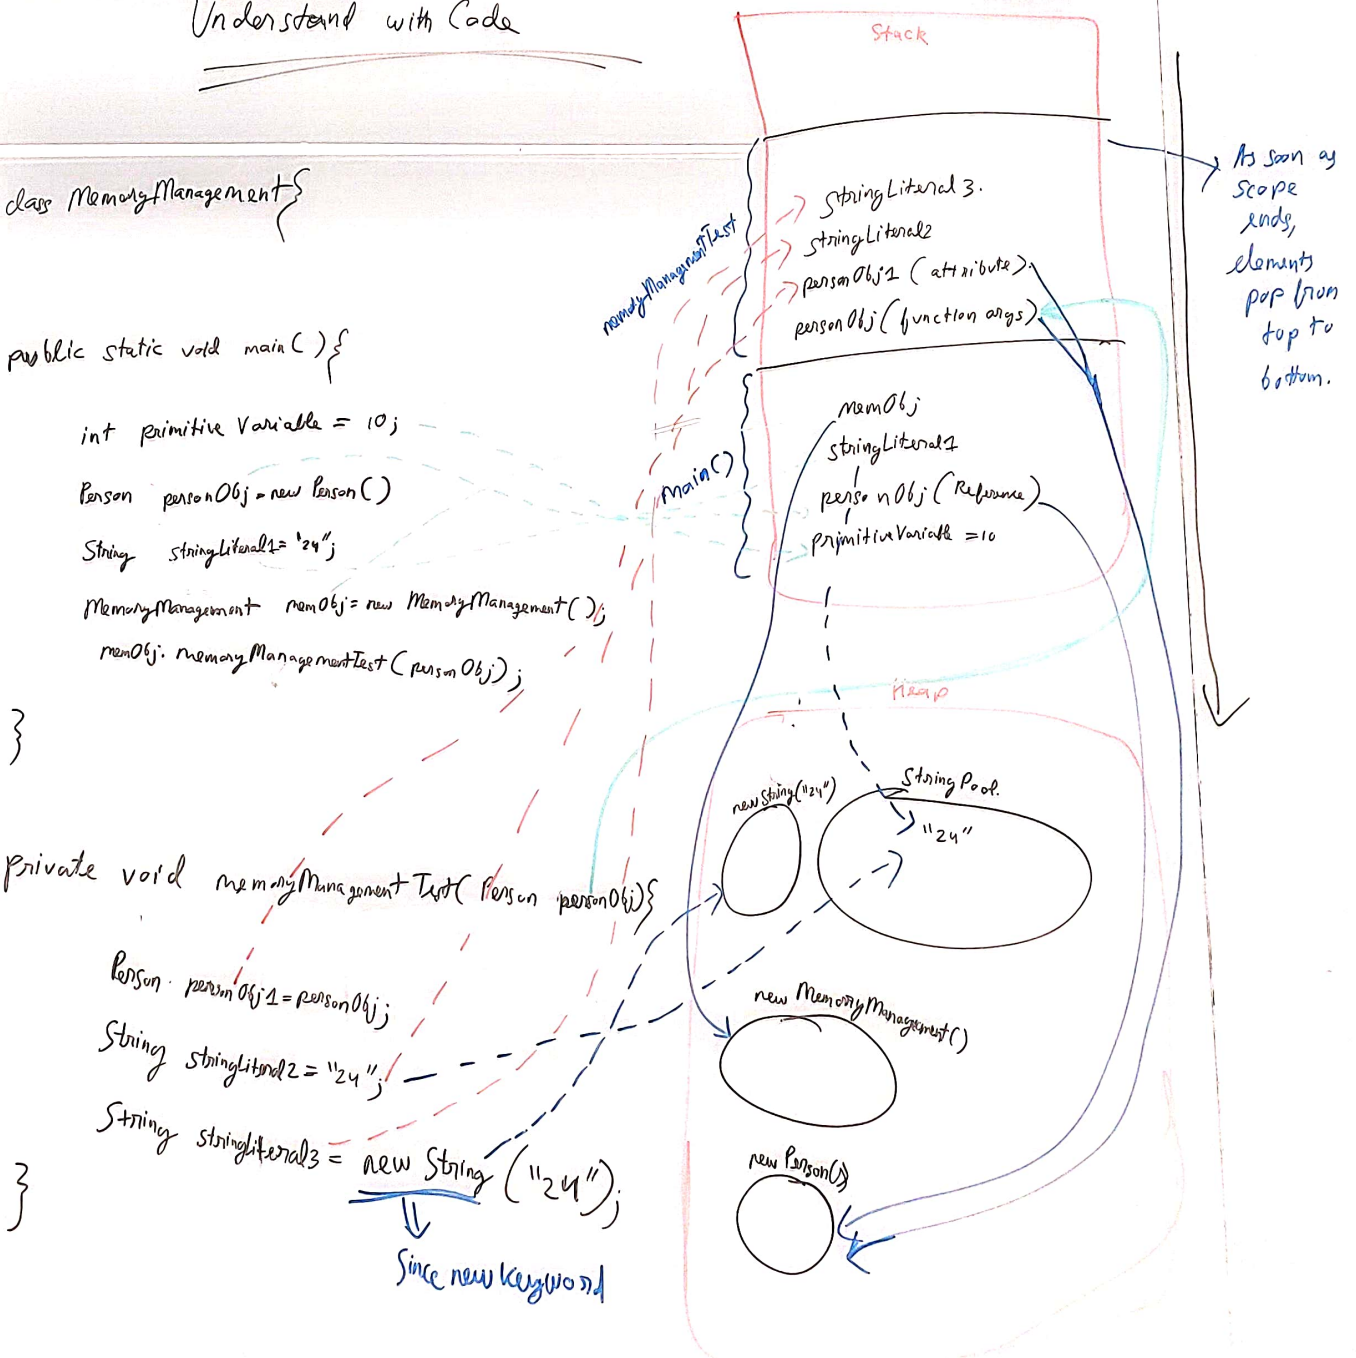 Understand with Code
class MemoryManagement{
public static void main( ){
int primitive Variable = 10;
Person personObj = new Person( )
String stringLiteral1 = "24";
MemoryManagement memObj = new MemoryManagement( );
memObj. memoryManagementTest(personObj);
}
private void memoryManagementTest( Person personObj){
Person personObj1 = personObj;
String stringLiteral2 = "24";
String stringLiteral3 = new String ("24");
}
Since new keyword
Stack
memoryManagementTest
stringLiteral3.
stringLiteral2
personObj1 (attribute).
personObj (function args)
main( )
memObj
stringLiteral1
personObj (Reference)
primitiveVariable = 10
As soon as
scope
ends,
elements
pop from
top to
bottom.
Heap
new String("24")
StringPool.
"24"
new MemoryManagement( )
new Person( )